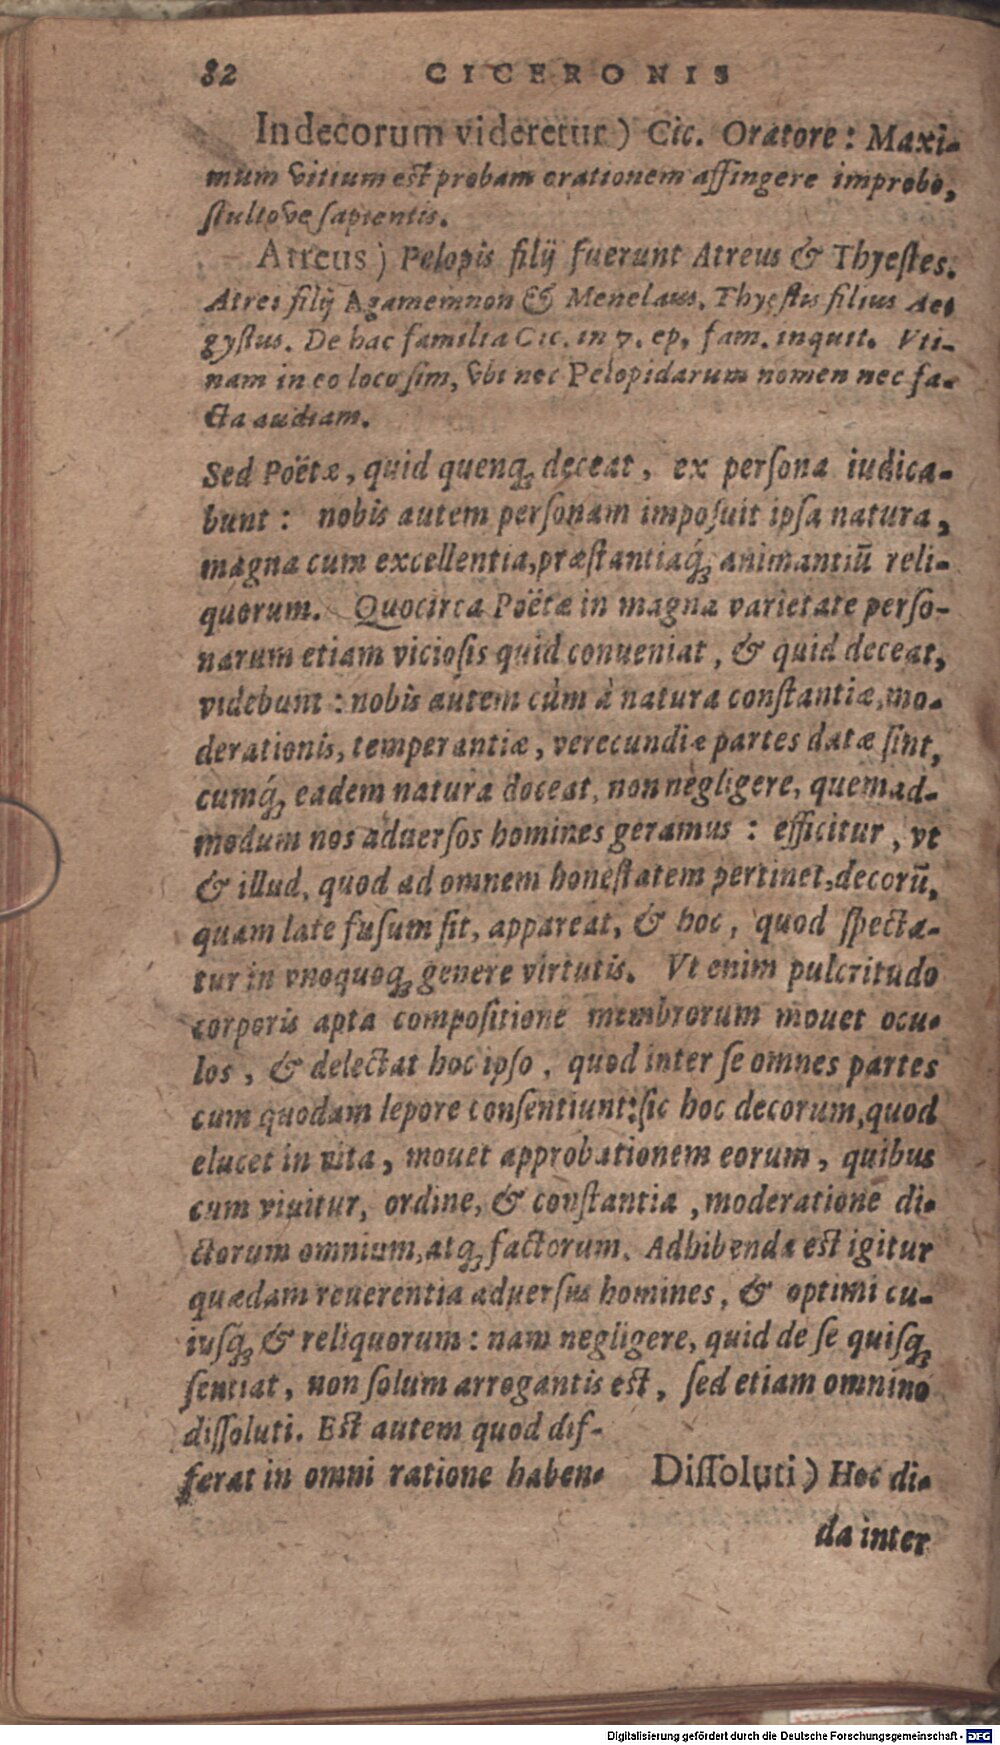 82 CICERONIS
Indecorum videretur) Cic. Oratore: Maxi-
mum vitium est probam orationem affingere improbo,
stultove sapientis.
Atreus) Pelopis filij fuerunt Atreus & Thyestes.
Atrei filij Agamemnon & Menelaus. Thyestis filius Ae-
gystus. De hac familia Cic. in 7. ep. fam. inquit. Vti-
nam in eo loco sim, vbi nec Pelopidarum nomen nec fa-
cta audiam.
Sed Poëtæ, quid quenq; deceat, ex persona iudica-
bunt: nobis autem personam imposuit ipsa natura,
magna cum excellentia, præstantiaq́; animantiū reli-
quorum. Quocirca Poëtæ in magna varietate perso-
narum etiam viciosis quid conueniat, & quid deceat,
videbunt: nobis autem cùm à natura constantiæ, mo-
derationis, temperantiæ, verecundiæ partes datæ sint,
cumq́; eadem natura doceat, non negligere, quemad-
modum nos aduersos homines geramus: efficitur, vt
& illud, quod ad omnem honestatem pertinet, decorū,
quam late fusum sit, appareat, & hoc, quod specta-
tur in vnoquoq; genere virtutis. Vt enim pulcritudo
corporis apta compositione membrorum mouet ocu-
los, & delectat hoc ipso, quod inter se omnes partes
cum quodam lepore consentiunt: sic hoc decorum, quod
elucet in vita, mouet approbationem eorum, quibus
cum viuitur, ordine, & constantia, moderatione di-
ctorum omnium, atq; factorum. Adhibenda est igitur
quædam reuerentia aduersus homines, & optimi cu-
iusq́; & reliquorum: nam negligere, quid de se quisq;
sentiat, non solum arrogantis est, sed etiam omnino
dissoluti. Est autem quod dif-
ferat in omni ratione haben- Dissoluti) Hoc di-
da inter
Digitalisierung gefördert durch die Deutsche Forschungsgemeinschaft - DFG